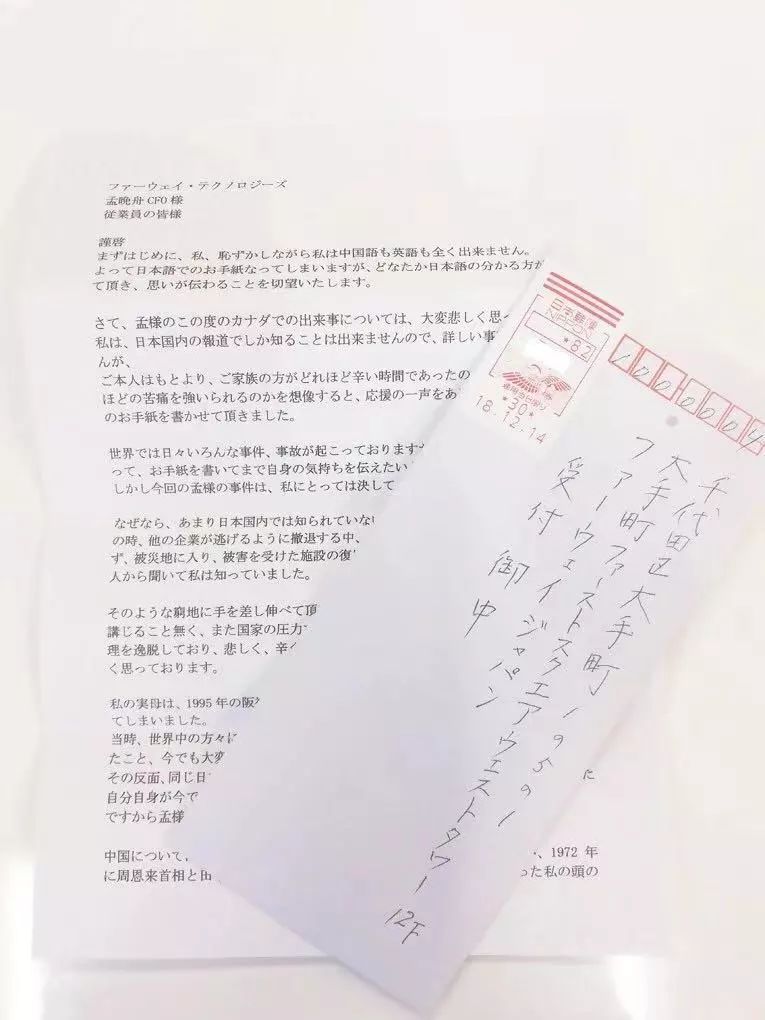 ファーウェイ・テクノロジーズ
孟晩舟 CFO 様
従業員の皆様
謹啓
まずはじめに、私、恥ずかしながら私は中国語も英語も全く出来ません。
よって日本語でのお手紙なってしまいますが、どなたか日本語の分かる方が
て頂き、思いが伝わることを切望いたします。
さて、孟様のこの度のカナダでの出来事については、大変悲しく思っ
私は、日本国内の報道でしか知ることは出来ませんので、詳しい事
んが、
ご本人はもとより、ご家族の方がどれほど辛い時間であったの
ほどの苦痛を強いられるのかを想像すると、応援の一声をあ
のお手紙を書かせて頂きました。
世界では日々いろんな事件、事故が起こっております
って、お手紙を書いてまで自身の気持ちを伝えたい
しかし今回の孟様の事件は、私にとっては決して
なぜなら、あまり日本国内では知られていな
の時、他の企業が逃げるように撤退する中、
ず、被災地に入り、被害を受けた施設の復
人から聞いて私は知っていました。
そのような窮地に手を差し伸べて頂
講じること無く、また国家の圧力
理を逸脱しており、悲しく、辛く
く思っております。
私の実母は、1995 年の阪
てしまいました。
当時、世界中の方々に
たこと、今でも大変
その反面、同じ日
自分自身が今で
ですから孟様
中国について、
、1972 年
に周恩来首相と田
った私の頭の
日本郵便
NIPPON
*82
*30*
18.12.14
1000004
千代田区大手町1の5の1
大手町ファーストスクエアウエストタワー12F
ファーウェイジャパン
受付 御中
に